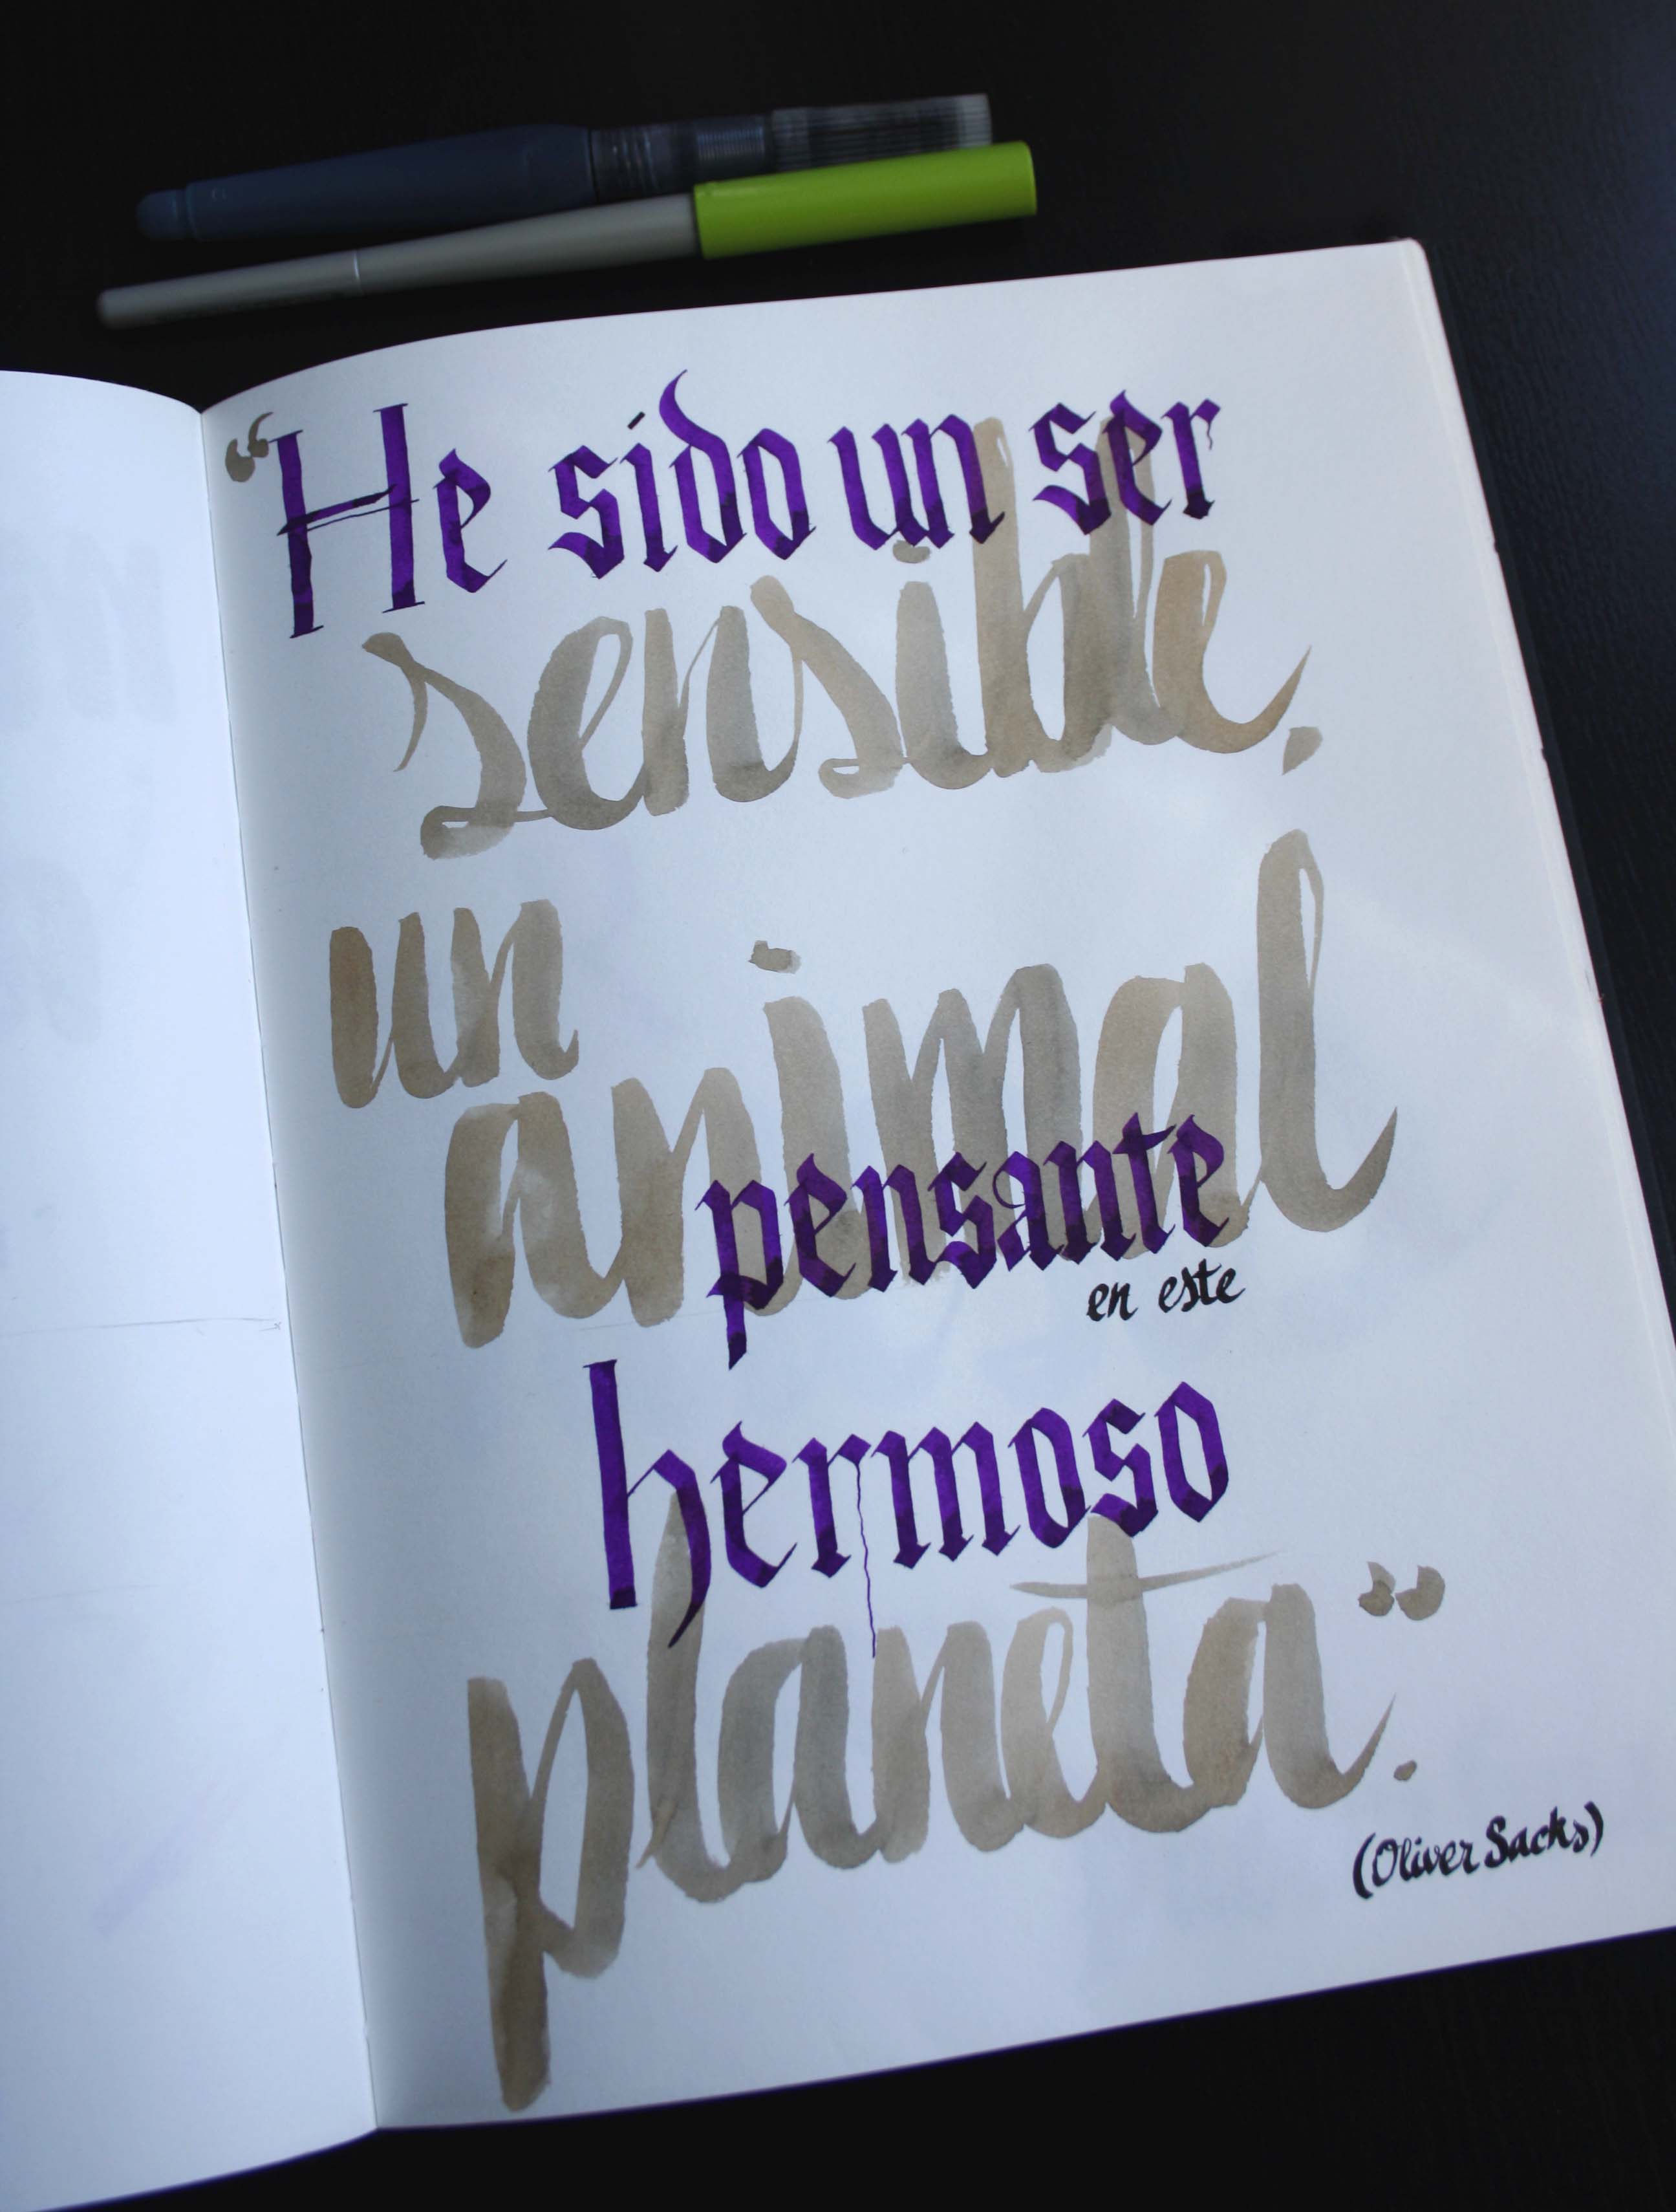 “He sido un ser
sensible,
un
animal
pensante
en este
hermoso
planeta”.
(Oliver Sacks)